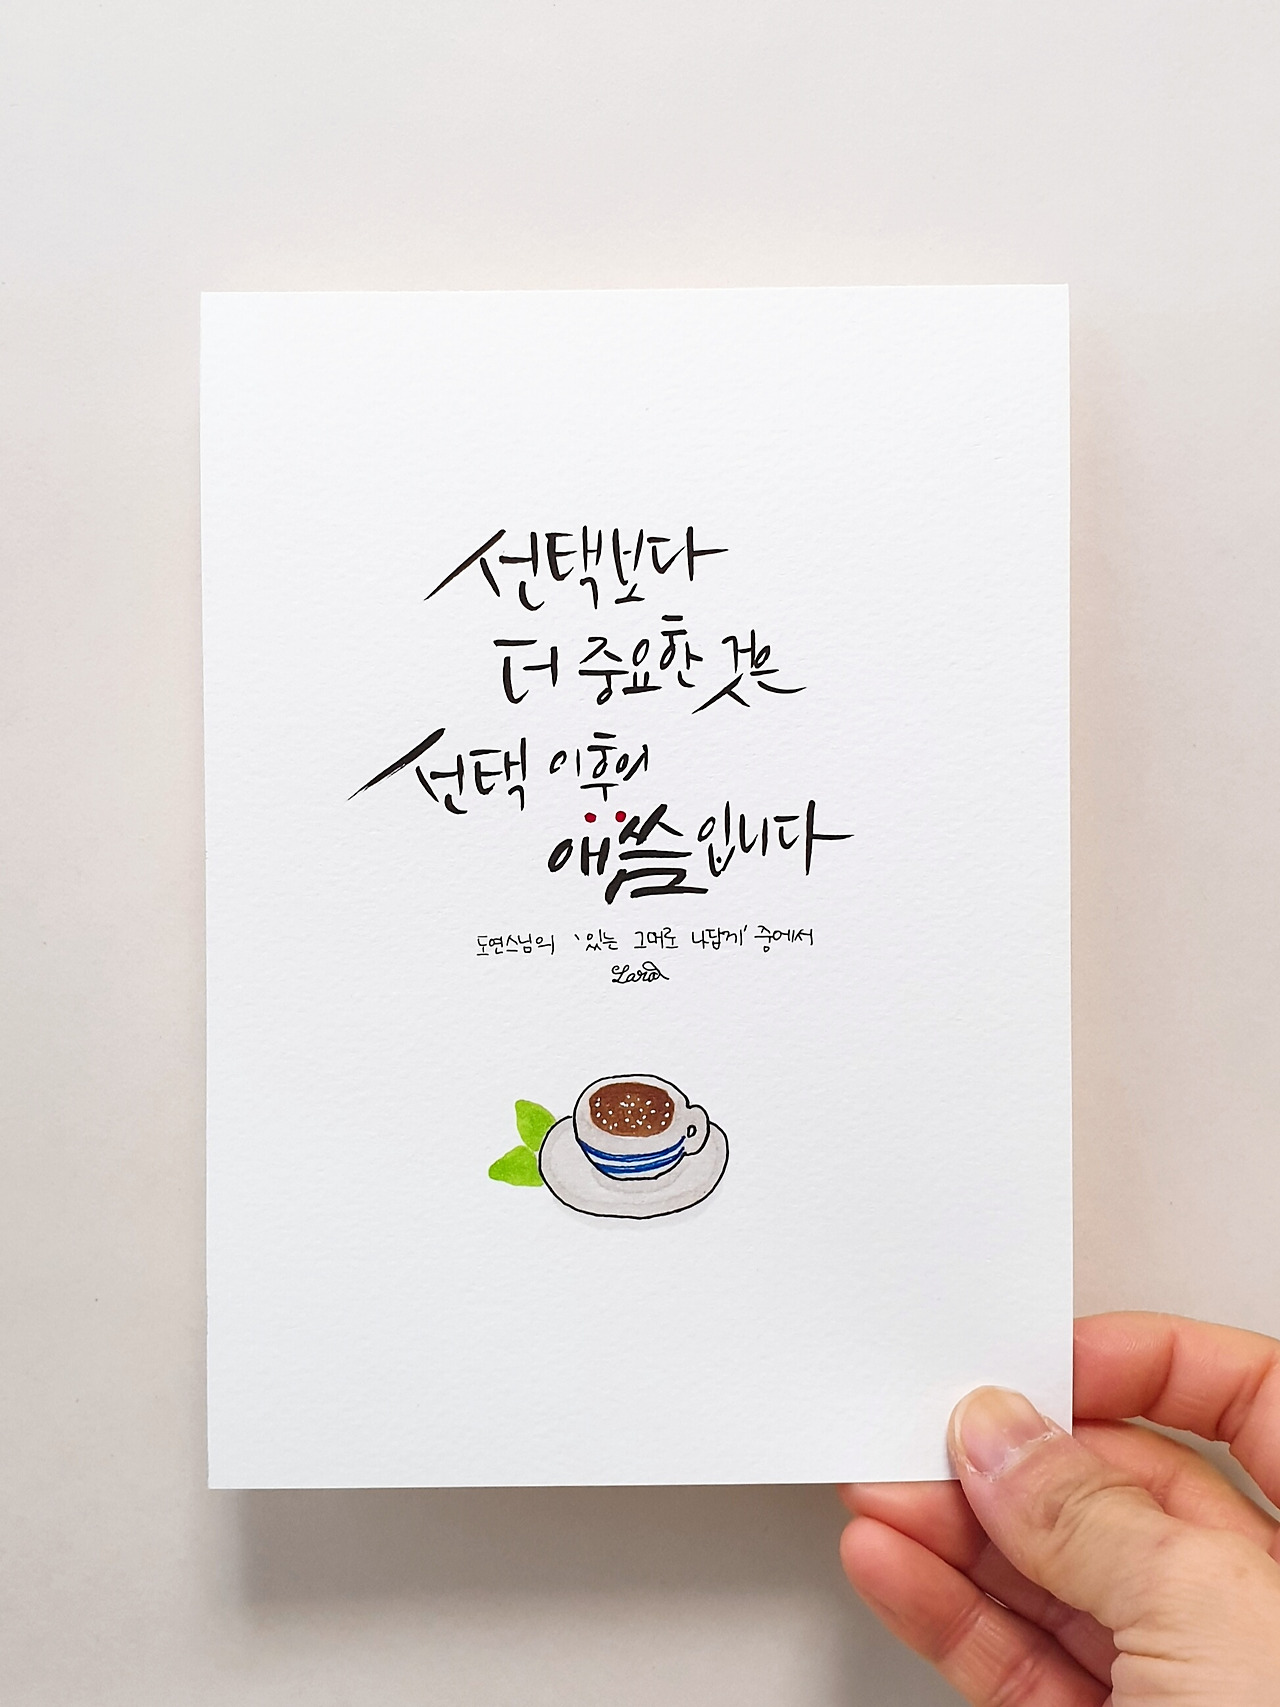 선택보다
더 중요한 것은
선택 이후의
애씀입니다
도연스님의 '있는 그대로 나답게' 중에서
Lara